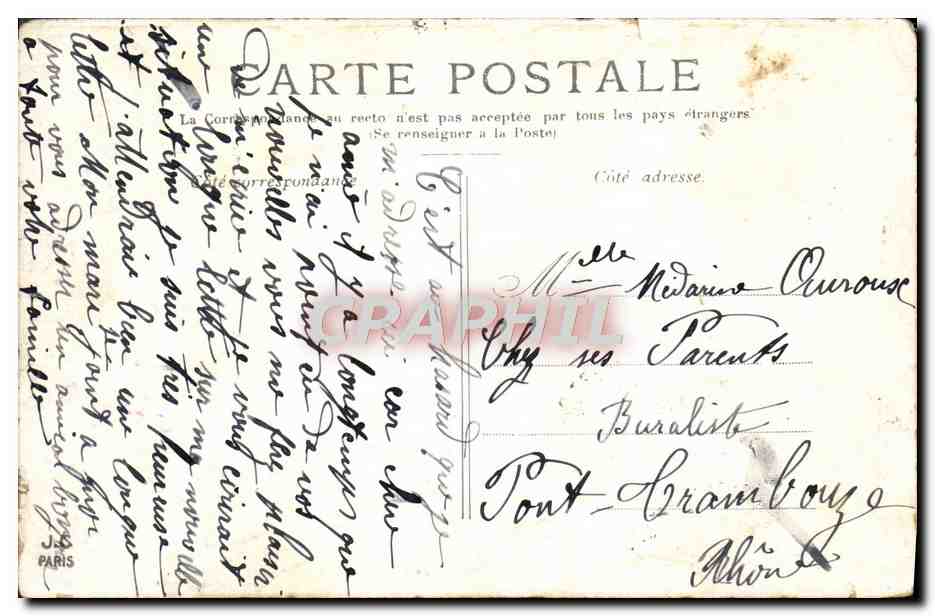 CARTE POSTALE
La Correspondance au recto n'est pas acceptée par tous les pays étrangers
(Se renseigner a la Poste)
Côté correspondance
Côté adresse.
C'est au hasard que je
m'adresse ici car chère
amie il y a longtemps que
je n'ai reçu de vos
nouvelles vous me fere plaisir
de m'ecrire et je vous ecrirait
une longue lettre sur ma nouvelle
situation je suis très heureuse
et j'attendrais bien une longue
lettre Mon mari se joint a moi
pour vous adresser un amical bonjour
a toute votre famille
Mlle Médarine Ouroux
Chez ses Parents
Buraliste
Pont-Trambouze
Rhône
CRAPHIL
PARIS